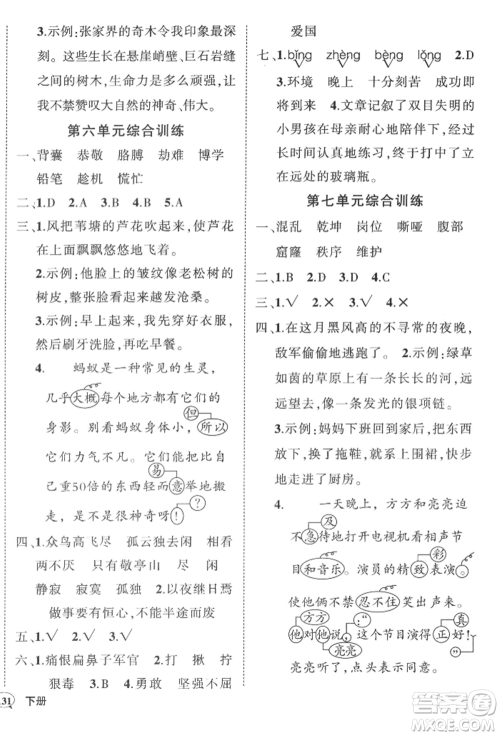 3.示例:张家界的奇木令我印象最深
刻。这些生长在悬崖峭壁、巨石岩缝
之间的树木,生命是多么顽强,让我
不禁赞叹大自然的神奇、伟大。
第六单元综合训练
一、背囊 恭敬 胳膊 劫难 博学
铅笔 趁机 慌忙
二、1.D 2.D 3.B 4.A 5.A
三、1.风把苇塘的芦花吹起来,使芦花
在上面飘飘悠悠地飞着。
2.示例:他脸上的皱纹像老松树的
树皮,整张脸变得越发沧桑。
3.示例:早上起来,我先穿好衣服,
然后刷牙洗脸,再吃早餐。
4. 蚂蚁是一种常见的生灵,
几乎大概每个地方都有他们的
身影。别看蚂蚁身小,所以
但
它们的力气可大了,能把比自己
易
重50倍的东西轻而意举地搬
走,是不是很神奇呀?!
四、1.众鸟高飞尽 孤云独去闲 相看
两不厌 只有敬亭山 尽 厌
静寂 寂寞 孤独 2.以夜继日焉
做事要有恒心,不能半途而废
五、1.√ 2.√
六、1.痛恨扁鼻子军官 2.打 揪 拧
狠毒 3.B 4.勇敢 坚强 英勇
131 下册
爱国
七、1.bīng zhèng bèng lǒng 2.D
3.环境 晚上 十分刻苦 成功即
将到来 4.文章记叙了双目失明的
小男孩在母亲无形地陪伴下,坚持
长时间认真地练习,打中了立在
远处的玻璃瓶。
第七单元综合训练
一、混乱 乾坤 岗位 嘶哑 腹部
窟窿 秩序 维护
二、1.B 2.D 3.D 4.D 5.D
三、1.√ 2.√ 3.√ 4.× 5.×
四、1.在这月黑风高的不寻常的夜晚,
敌军偷偷地逃跑了。 2.示例:绿草
如茵的草原上有一条长长的河,远
远望去,像一条发光的银项链。
3.示例:妈妈下班回到家,把东西放
下,换了拖鞋,系上围裙,就急匆匆
地进了厨房。
4. 一天晚上,方方和亮亮迫
不急待地打开电视机看相声节
及
彩
目和音乐。演员的精致表演,
使他俩不禁忍不住笑出声来。
方方
他对他说:“说相声的叔叔表演
亮亮
得真好!”他点头表示同意。